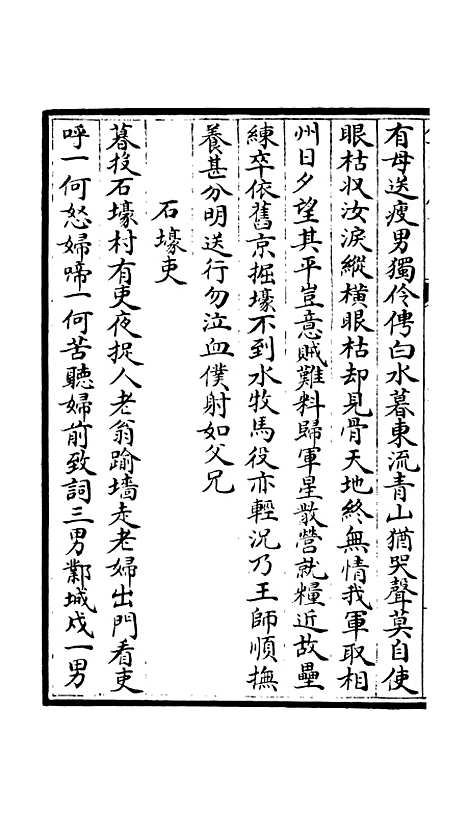 有母送瘦男獨伶俜白水暮東流青山猶哭聲莫自使
眼枯收汝淚縱橫眼枯却見骨天地終無情我軍取相
州日夕望其平豈意賊難料歸軍星散營就糧近故壘
練卒依舊京掘壕不到水牧馬役亦輕況乃王師順撫
養甚分明送行勿泣血僕射如父兄
石壕吏
暮投石壕村有吏夜捉人老翁踰墻走老婦出門看吏
呼一何怒婦啼一何苦聽婦前致詞三男鄴城戍一男